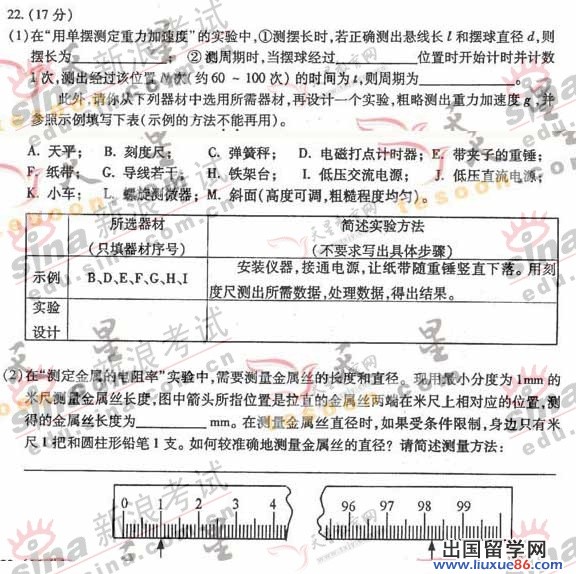 22.(17分)
(1)在“用单摆测定重力加速度”的实验中,①测摆长时,若正确测出悬线长l和摆球直径d,则
摆长为 ; ②测周期时,当摆球经过 位置时开始计时并计数
1次,测出经过该位置N次(约60~100次)的时间为t,则周期为 。
此外,请你从下列器材中选用所需器材,再设计一个实验,粗略测出重力加速度g,并
参照示例填写下表(示例的方法不能再用)。
A. 天平; B. 刻度尺; C. 弹簧秤; D. 电磁打点计时器; E. 带夹子的重锤;
F. 纸带; G. 导线若干; H. 铁架台; I. 低压交流电源; J. 低压直流电源;
K. 小车; L. 螺旋测微器; M. 斜面(高度可调,粗糙程度均匀)。
所选器材
(只填器材序号)
简述实验方法
(不要求写出具体步骤)
示例
B、D、E、F、G、H、I
安装仪器,接通电源,让纸带随重锤竖直下落。用刻
度尺测出所需数据,处理数据,得出结果。
实验
设计
(2)在“测定金属的电阻率”实验中,需要测量金属丝的长度和直径。现用最小分度为1mm的
米尺测量金属丝长度,图中箭头所指位置是拉直的金属丝两端在米尺上相对应的位置,测
得的金属丝长度为 mm。在测量金属丝直径时,如果受条件限制,身边只有米
尺1把和圆柱形铅笔1支。如何较准确地测量金属丝的直径?请简述测量方法:
0 1 2 3 4
96 97 98 99
出国留学网
www.liuxue86.com
sina 新浪考试
edu.sina.com.cn
天星教育网
tesoon.com